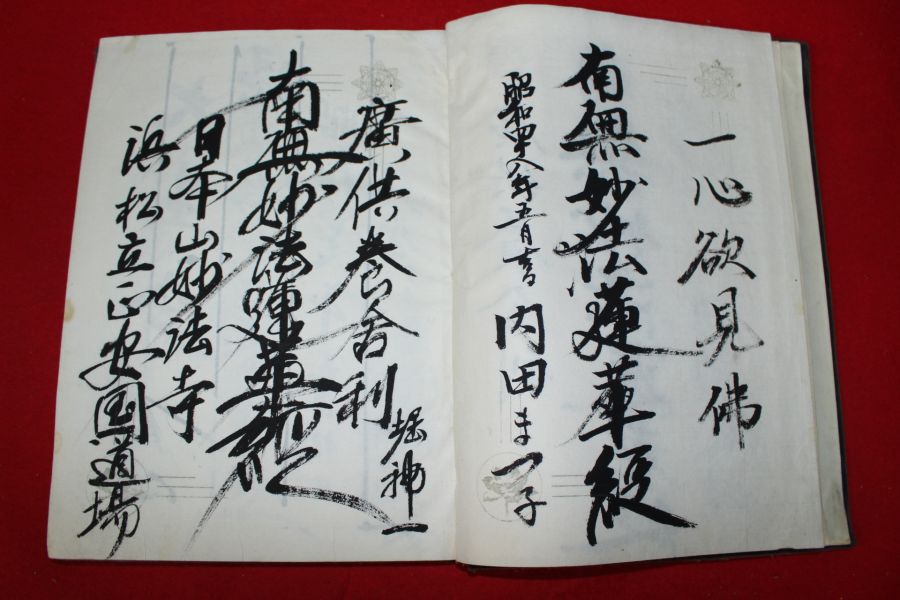 一心欲見佛
南無妙法蓮華経
昭和四十八年五月吉
内田ま子
廣供養舎利
堀
一
南無妙法蓮華経
日本山妙法寺
浜松立正安国道場